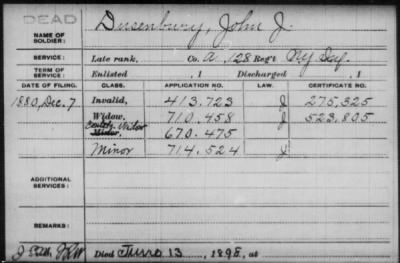 DEAD
NAME OF SOLDIER: Dusenbury, John J.
SERVICE: Late rank, Co. A, 128 Reg't NY Inf.
TERM OF SERVICE: Enlisted , 1 Discharged , 1
DATE OF FILING. CLASS. APPLICATION NO. LAW. CERTIFICATE NO.
1880, Dec. 7 Invalid, 413.723 J 275,325
Widow, 710.458 J 523,805
Contstg. Widow Minor, 670.475
Minor 714.524 J
ADDITIONAL SERVICES:
REMARKS:
Died June 13, 1898, at